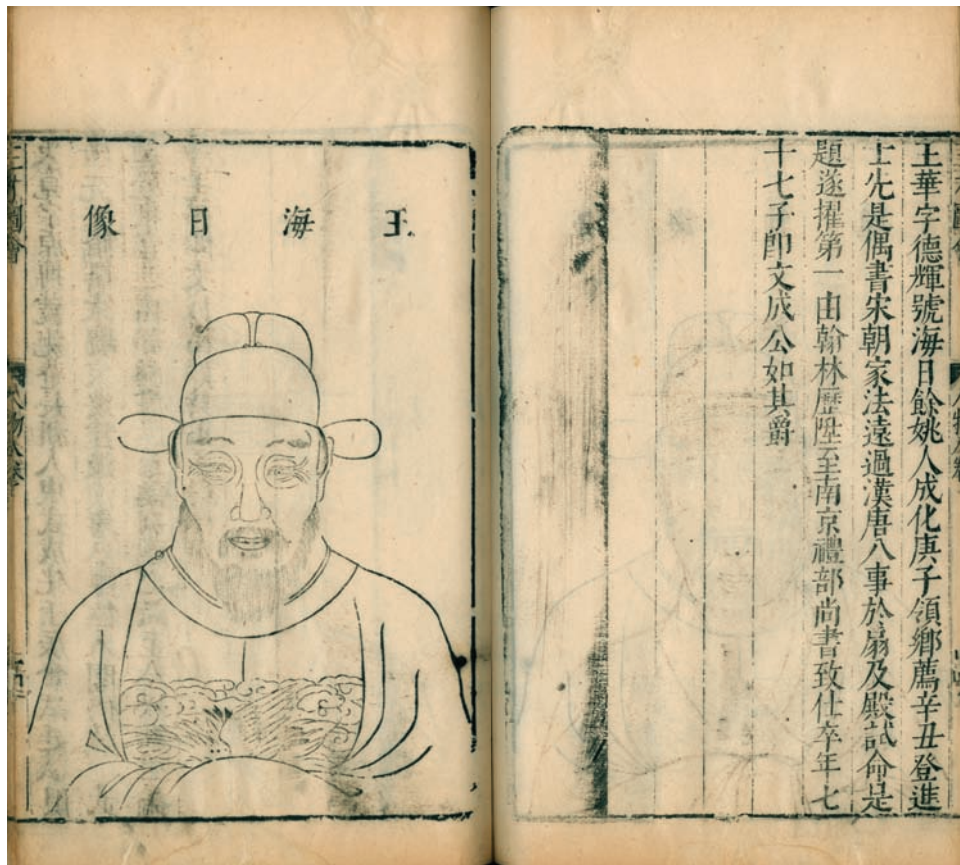 王華字德輝號海日餘姚人成化庚子領鄉薦辛丑登進
士先是偶書宋朝家法遠過漢唐八事於扇及殿試命是
題遂擢第一由翰林歷陞至南京禮部尚書致仕卒年七
十七子卽文成公如其爵
王海日像
三才圖會
人物八卷